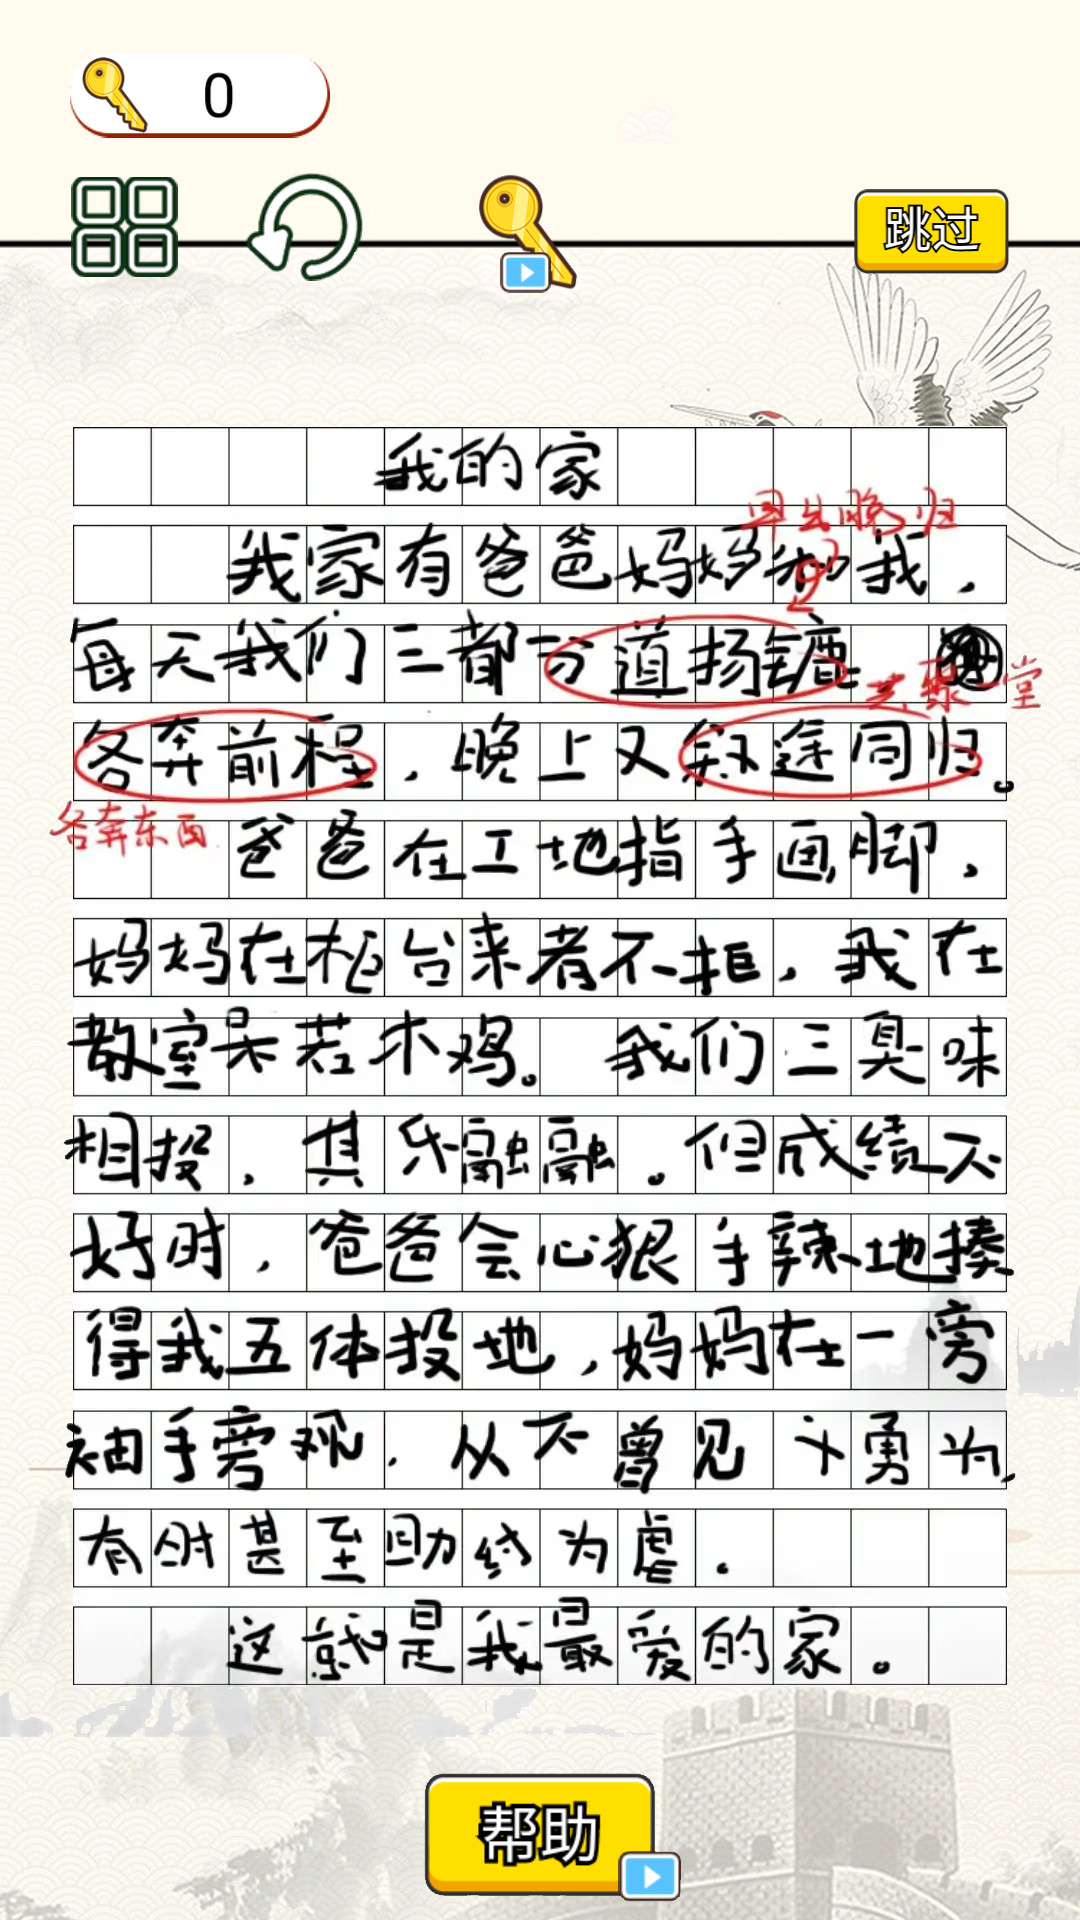 0
跳过
我的家
早出晚归
我家有爸爸妈妈和我,
每天我们三都分道扬镳
共聚一堂
各奔前程,晚上又殊途同归。
各奔东西
爸爸在工地指手画脚,
妈妈在柜台来者不拒,我在
教室呆若木鸡。我们三臭味
相投,其乐融融。但成绩不
好时,爸爸会心狠手辣地揍
得我五体投地,妈妈在一旁
袖手旁观,从不曾见义勇为,
有时甚至助纣为虐.
这就是我最爱的家。
帮助